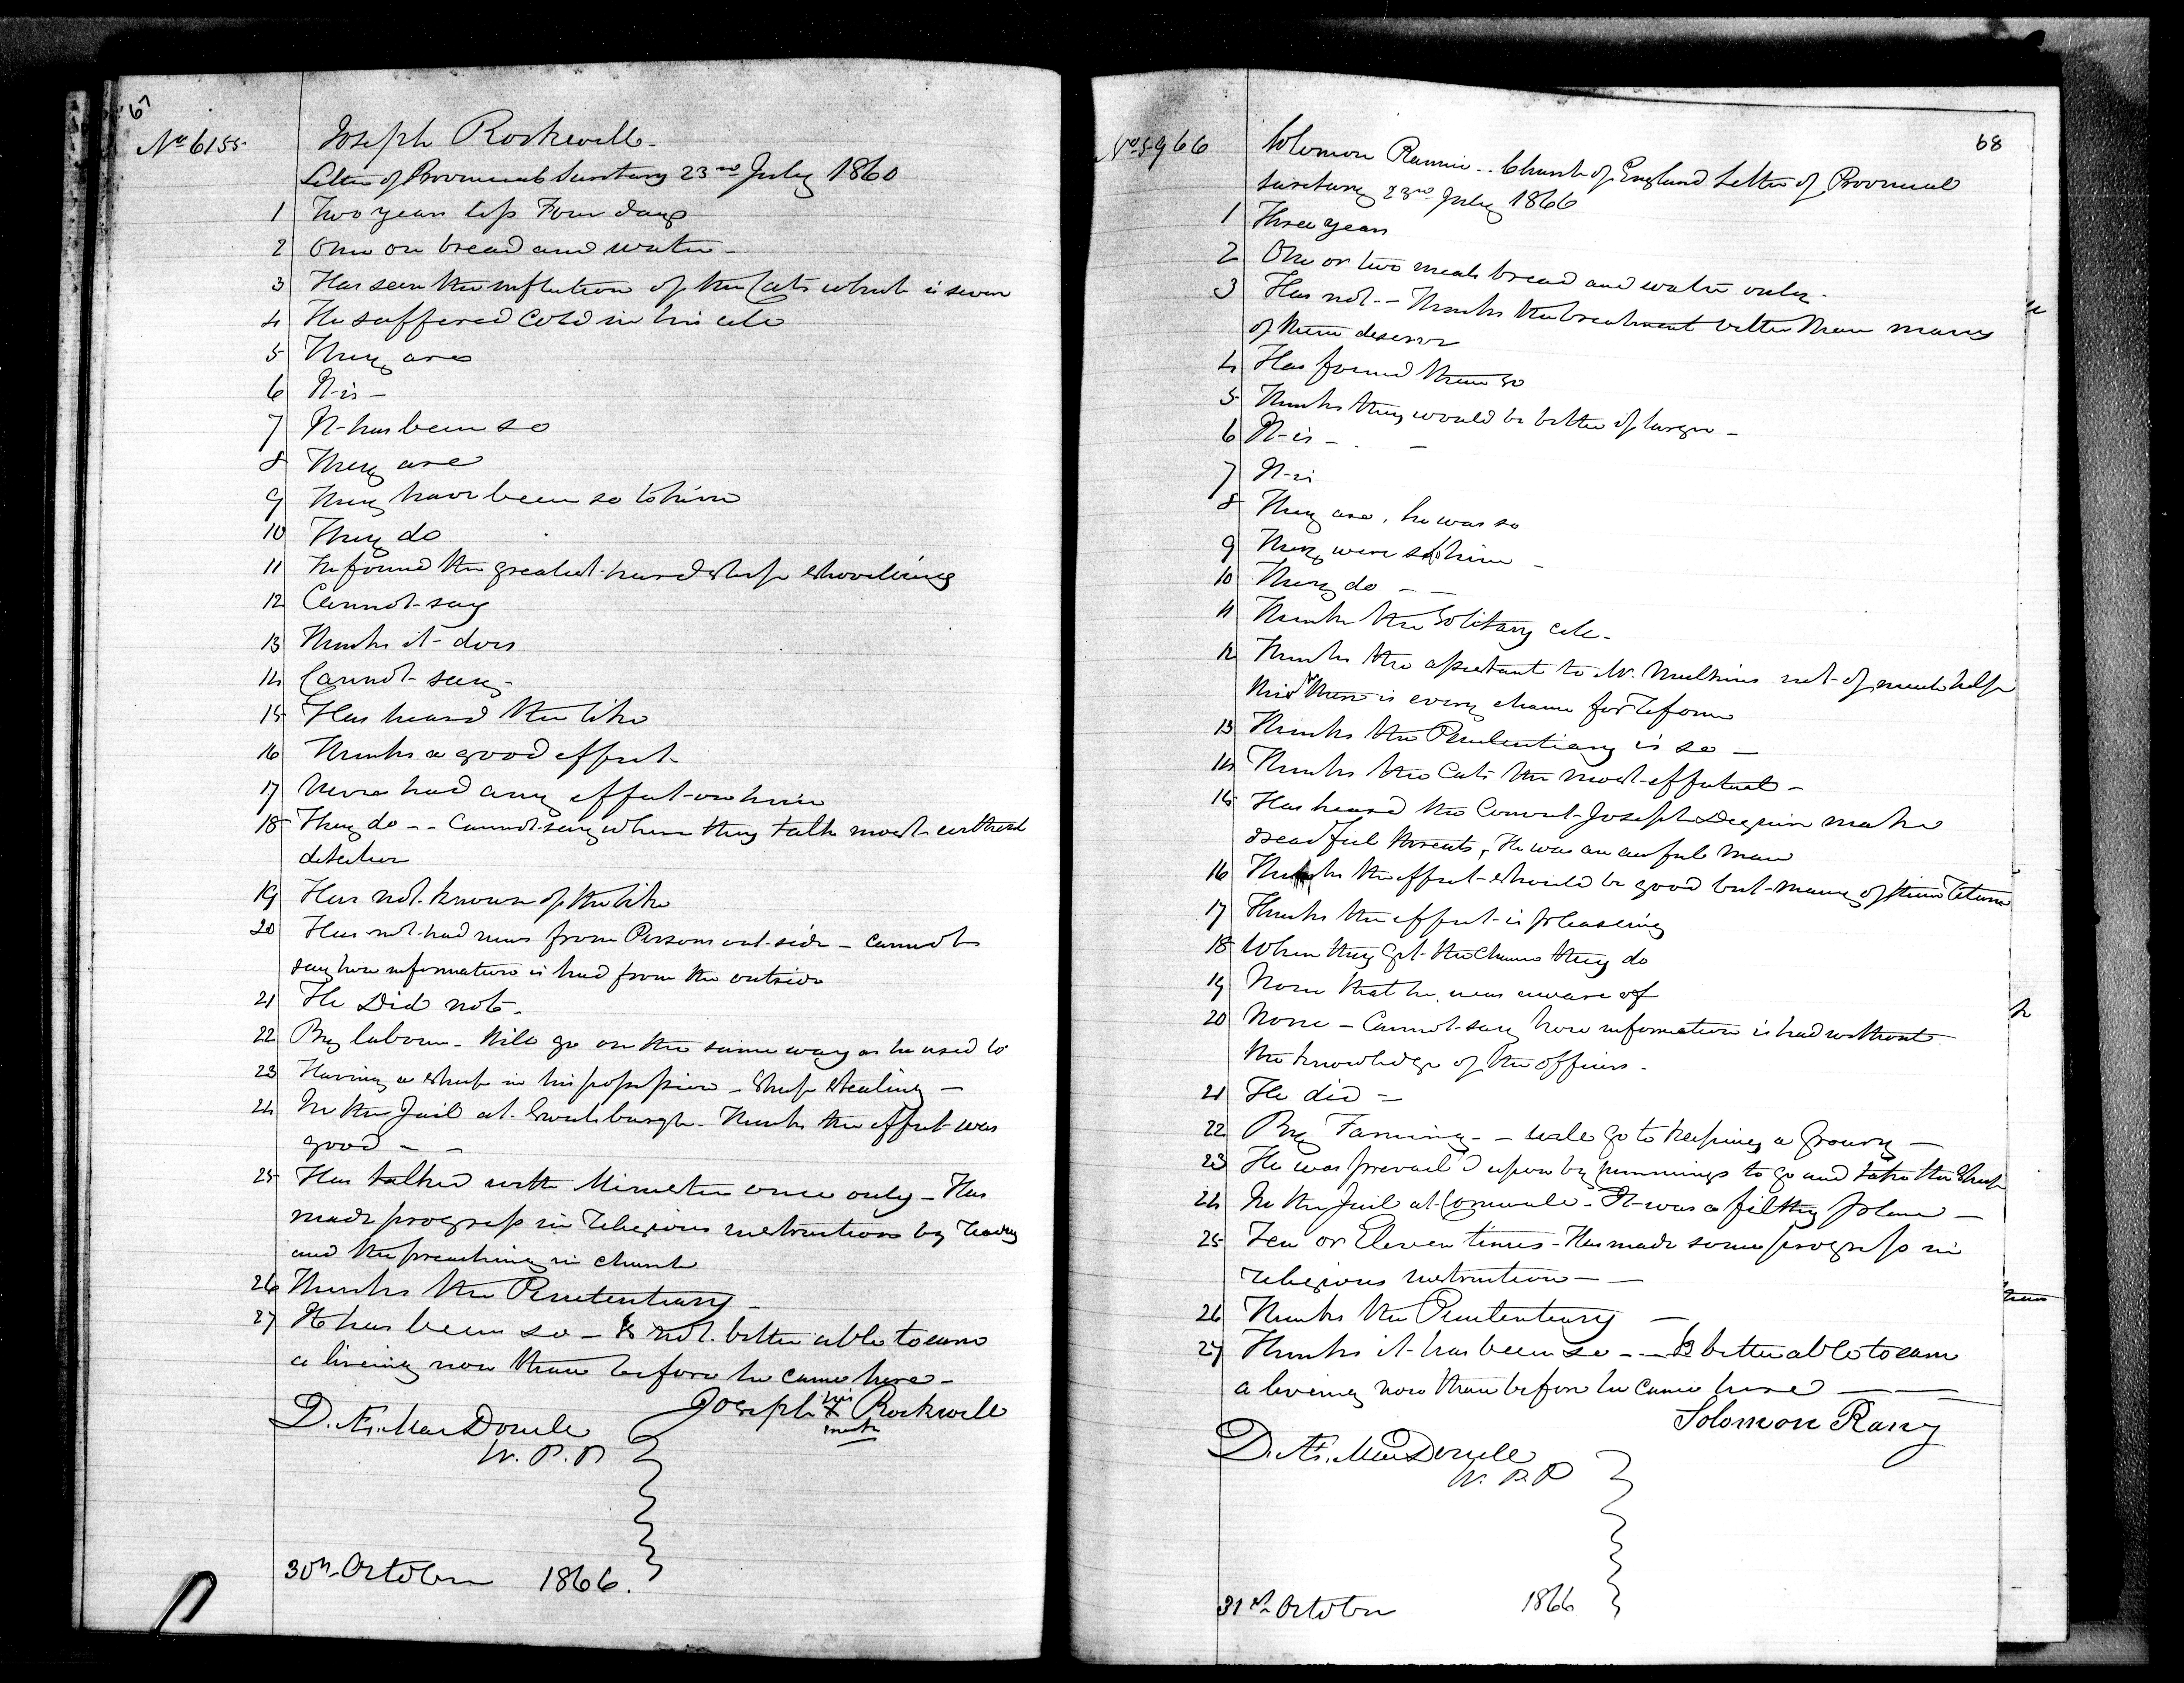 67
No 6155
Joseph Rockwell.
Letter of Provincial Secretary 23rd July 1860
1 Two years less Four days
2 One on bread and water -
3 Has seen the infliction of the Cats which is severe
4 He suffered Cold in his cell
5 They are
6 It is -
7 It has been so
8 They are
9 They have been so to him
10 They do
11 He found the greatest hardship shoveling
12 Cannot say
13 Thinks it does
14 Cannot say
15 Has heard the like
16 Thinks a good effect
17 Never had any effect on him
18 They do -- Cannot say where they talk most without
detection
19 Has not known of the like
20 Has not had news from Persons out-side - cannot
say how information is had from the outside
21 He Did not.
22 By labour. Will go on the same way as he used to
23 Having a sheep in his possession - Sheep Stealing -
24 In the Jail at Sweetsburgh. Thinks the effect was
good - -
25 Has talked with Minister once only - Has
made progress in religious instruction by reading
and the preaching in church
26 Thinks the Penitentiary -
27 It has been so - Is not better able to earn
a living now than before he came here -
D. Æ. MacDonell
W. P. P
Joseph his X mark Rockwell
30th October 1866.
68
No 5966
Solomon Rannie .. Church of England Letter of Provincial
Secretary 23rd July 1866
1 Three years
2 One or two meals bread and water only.
3 Has not - Thinks the treatment better than many
of them deserve
4 Has found them so
5 Thinks they would be better if larger -
6 It is - -
7 It is
8 They are, he was so
9 They were so to him -
10 They do - -
11 Thinks the Solitary cell -
12 Thinks the assistant to Mr. Mulkins not of much help
there is every chance for reform
13 Thinks the Penitentiary is so -
14 Thinks the Cats the most effectual -
15 Has heard the Convict Joseph make
dreadful threats, He was an awful man
16 Thinks the effect should be good but many of them return
17 Thinks the effect is pleasing
18 When they get the chance they do
19 None that he was aware of
20 None - Cannot say how information is had without
the knowledge of the officers.
21 He did -
22 By Farming. - will go to keeping a Grocery -
23 He was prevail'd upon by to go and take the Sheep
24 In the Jail at Cornwall - It was a filthy place -
25 Ten or Eleven times - Has made some progress in
religious instruction - -
26 Thinks the Penitentiary -
27 Thinks it has been so - - Is better able to earn
a living now than before he came here - -
Solomon Rany
D. Æ. MacDonell
W. P. P
31st October 1866